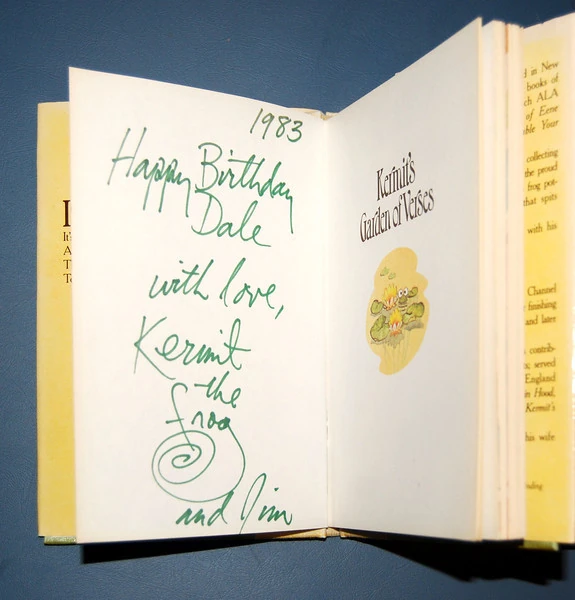 1983
Happy Birthday
Dale
with love,
Kermit
the
frog
and Jim
Kermit's
Garden of Verses
It's
A
T
To
d in New
books of
ch ALA
of Eene
ble Your
collecting
the proud
frog pot-
that spits
with his
Channel
finishing
and later
contrib-
served
England
in Hood,
Kermit's
his wife